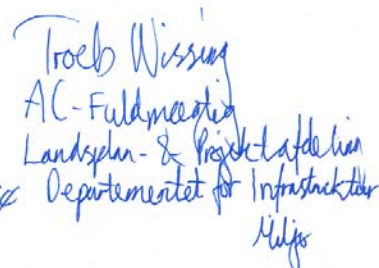 Troels Wissing
AC-Fuldmægtig
Landsplan- & Projektafdeling
Departementet for Infrastruktur
Miljø